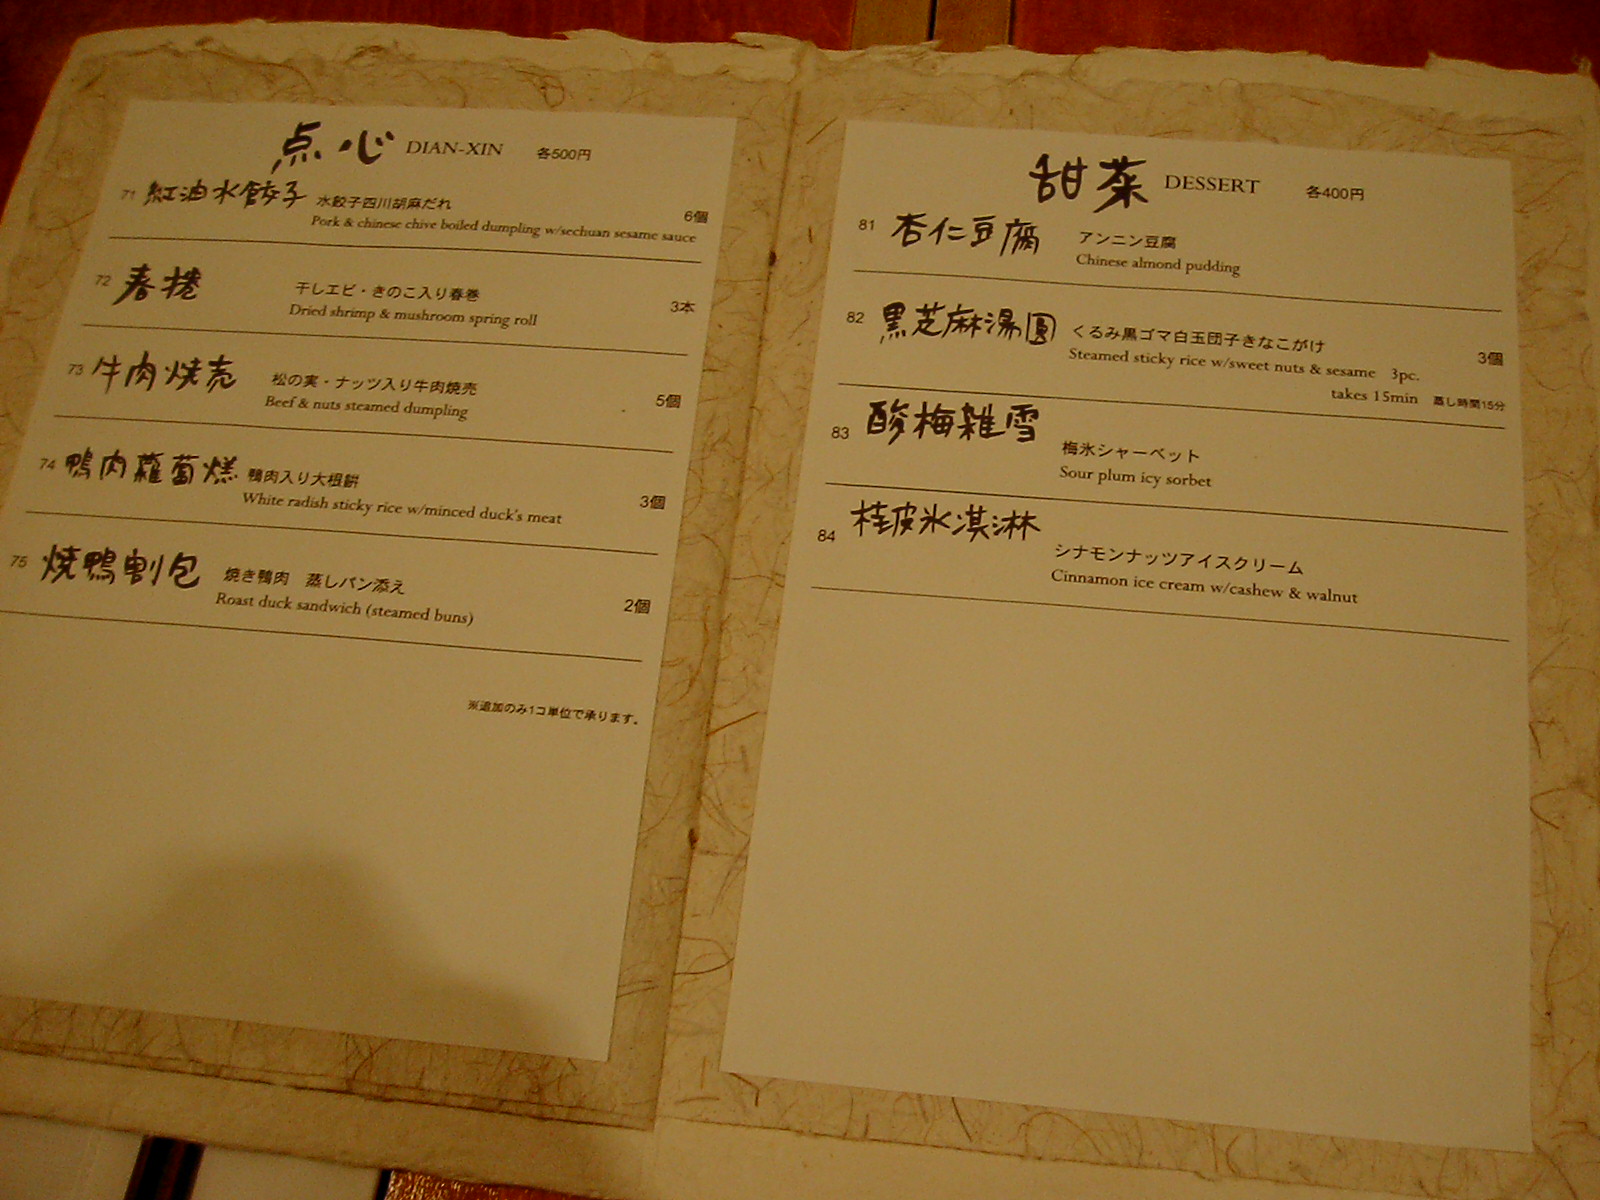 点心 DIAN-XIN 各500円
71 紅油水餃子 水餃子四川胡麻だれ 6個
Pork & chinese chive boiled dumpling w/sechuan sesame sauce
72 春捲 干しエビ・きのこ入り春巻 3本
Dried shrimp & mushroom spring roll
73 牛肉焼売 松の実・ナッツ入り牛肉焼売 5個
Beef & nuts steamed dumpling
74 鴨肉蘿蔔糕 鴨肉入り大根餅 3個
White radish sticky rice w/minced duck's meat
75 焼鴨割包 焼き鴨肉 蒸しパン添え 2個
Roast duck sandwich (steamed buns)
※追加のみ1コ単位で承ります。
甜菜 DESSERT 各400円
81 杏仁豆腐 アンニン豆腐
Chinese almond pudding
82 黒芝麻湯圓 くるみ黒ゴマ白玉団子きなこがけ 3個
Steamed sticky rice w/sweet nuts & sesame 3pc.
takes 15min 蒸し時間15分
83 酸梅雑雪 梅氷シャーベット
Sour plum icy sorbet
84 桂皮氷淇淋 シナモンナッツアイスクリーム
Cinnamon ice cream w/cashew & walnut